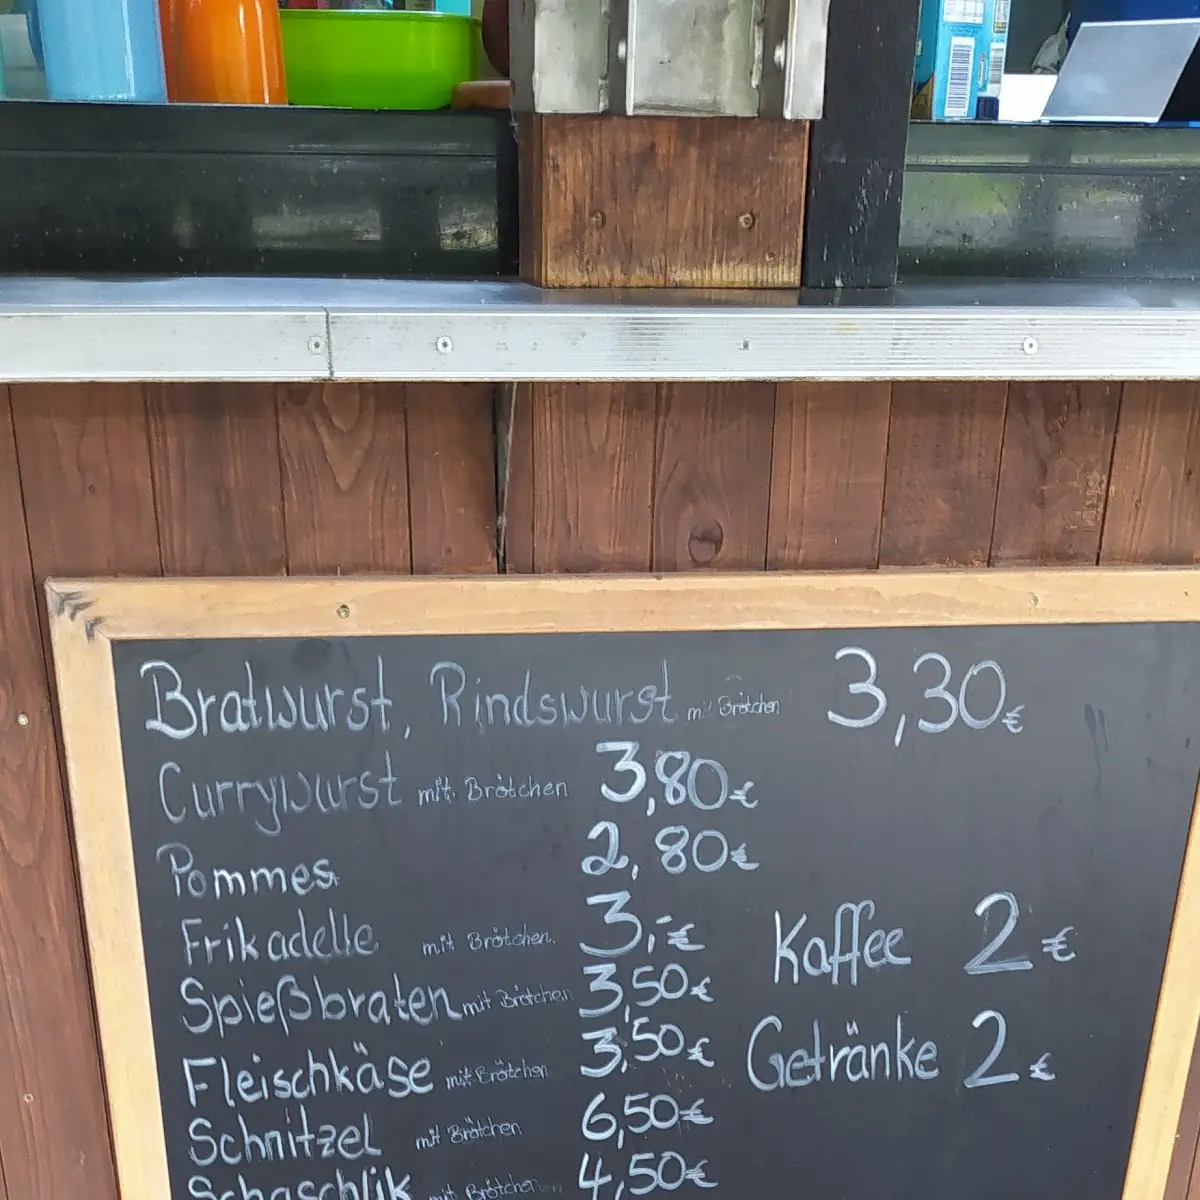 Bratwurst, Rindswurst mit Brötchen 3,30€
Currywurst mit Brötchen 3,80€
Pommes 2,80€
Frikadelle mit Brötchen. 3,-€
Spießbraten mit Brötchen 3,50€
Fleischkäse mit Brötchen 3,50€
Schnitzel mit Brötchen 6,50€
Schaschlik mit Brötchen 4,50€
Kaffee 2€
Getränke 2€